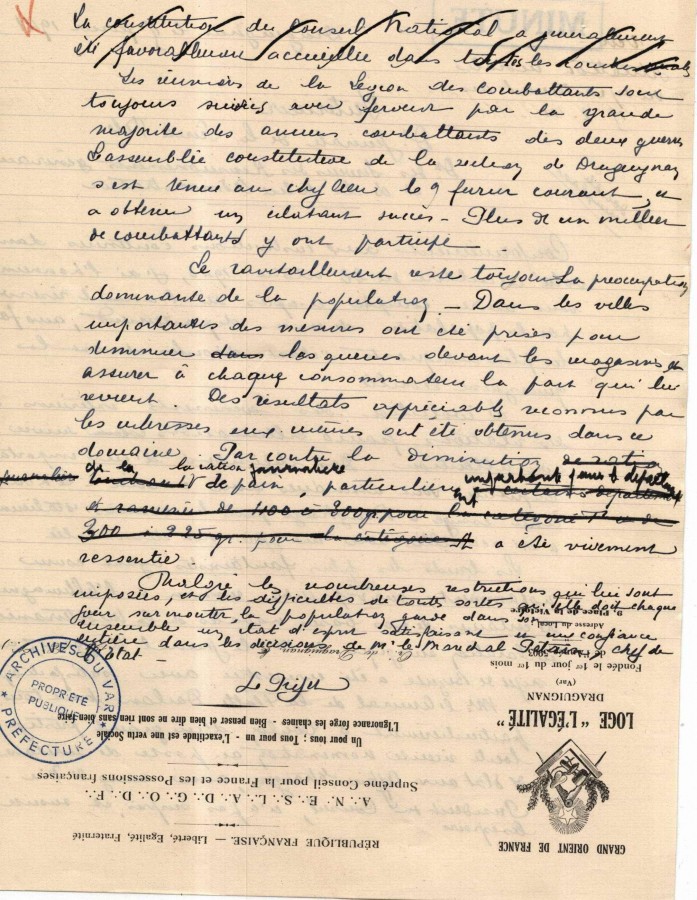 MINUTE
La constitution du Conseil National a généralement
été favorablement accueillie dans tous les
Les réunions de la Légion des combattants sont
toujours suivies avec ferveur par la grande
majorité des anciens combattants des deux guerres
L'assemblée constitutive de la section de Draguignan
s'est tenue au le 9 février courant, et
a obtenu un éclatant succès - Plus de un millier
de combattants y ont participé
Le ravitaillement reste toujours la préoccupation
dominante de la population - Dans les villes
importantes des mesures ont été prises pour
diminuer dans les queues devant les magasins et
assurer à chaque consommateur la part qui lui
revient. Des résultats appréciables reconnus par
les intéressés eux-mêmes ont été obtenus dans ce
domaine. Par contre la diminution de
de la la ration journalière importante pour le
de pain, particulière
et ramenée de 400 à 300 gr pour la catégorie
300 à 225 gr. pour la catégorie A a été vivement
ressentie.
Malgré les nombreuses restrictions qui lui sont
imposées, et les difficultés de toutes sortes qu'elle doit chaque
jour surmonter, la population garde dans son
ensemble un état d'esprit satisfaisant et une confiance
entière dans les décisions de Mr le Maréchal Pétain, chef de
l'État -
Le Préfet
ARCHIVES DU VAR
PROPRIÉTÉ PUBLIQUE
PRÉFECTURE
GRAND ORIENT DE FRANCE
RÉPUBLIQUE FRANÇAISE. — Liberté, Égalité, Fraternité
A.. N.. E.. S.. L.. A.. D.. G.. O.. D.. F..
Suprême Conseil pour la France et les Possessions françaises
Un pour tous ; Tous pour un - L'exactitude est une vertu Sociale
L'Ignorance forge les chaînes - Bien penser et bien dire ne sont rien sans bien faire
LOGE "L'ÉGALITÉ"
DRAGUIGNAN
(Var)
Fondée le 1er jour du 1er mois
5003
Adresse du Local
Place de la Victoire